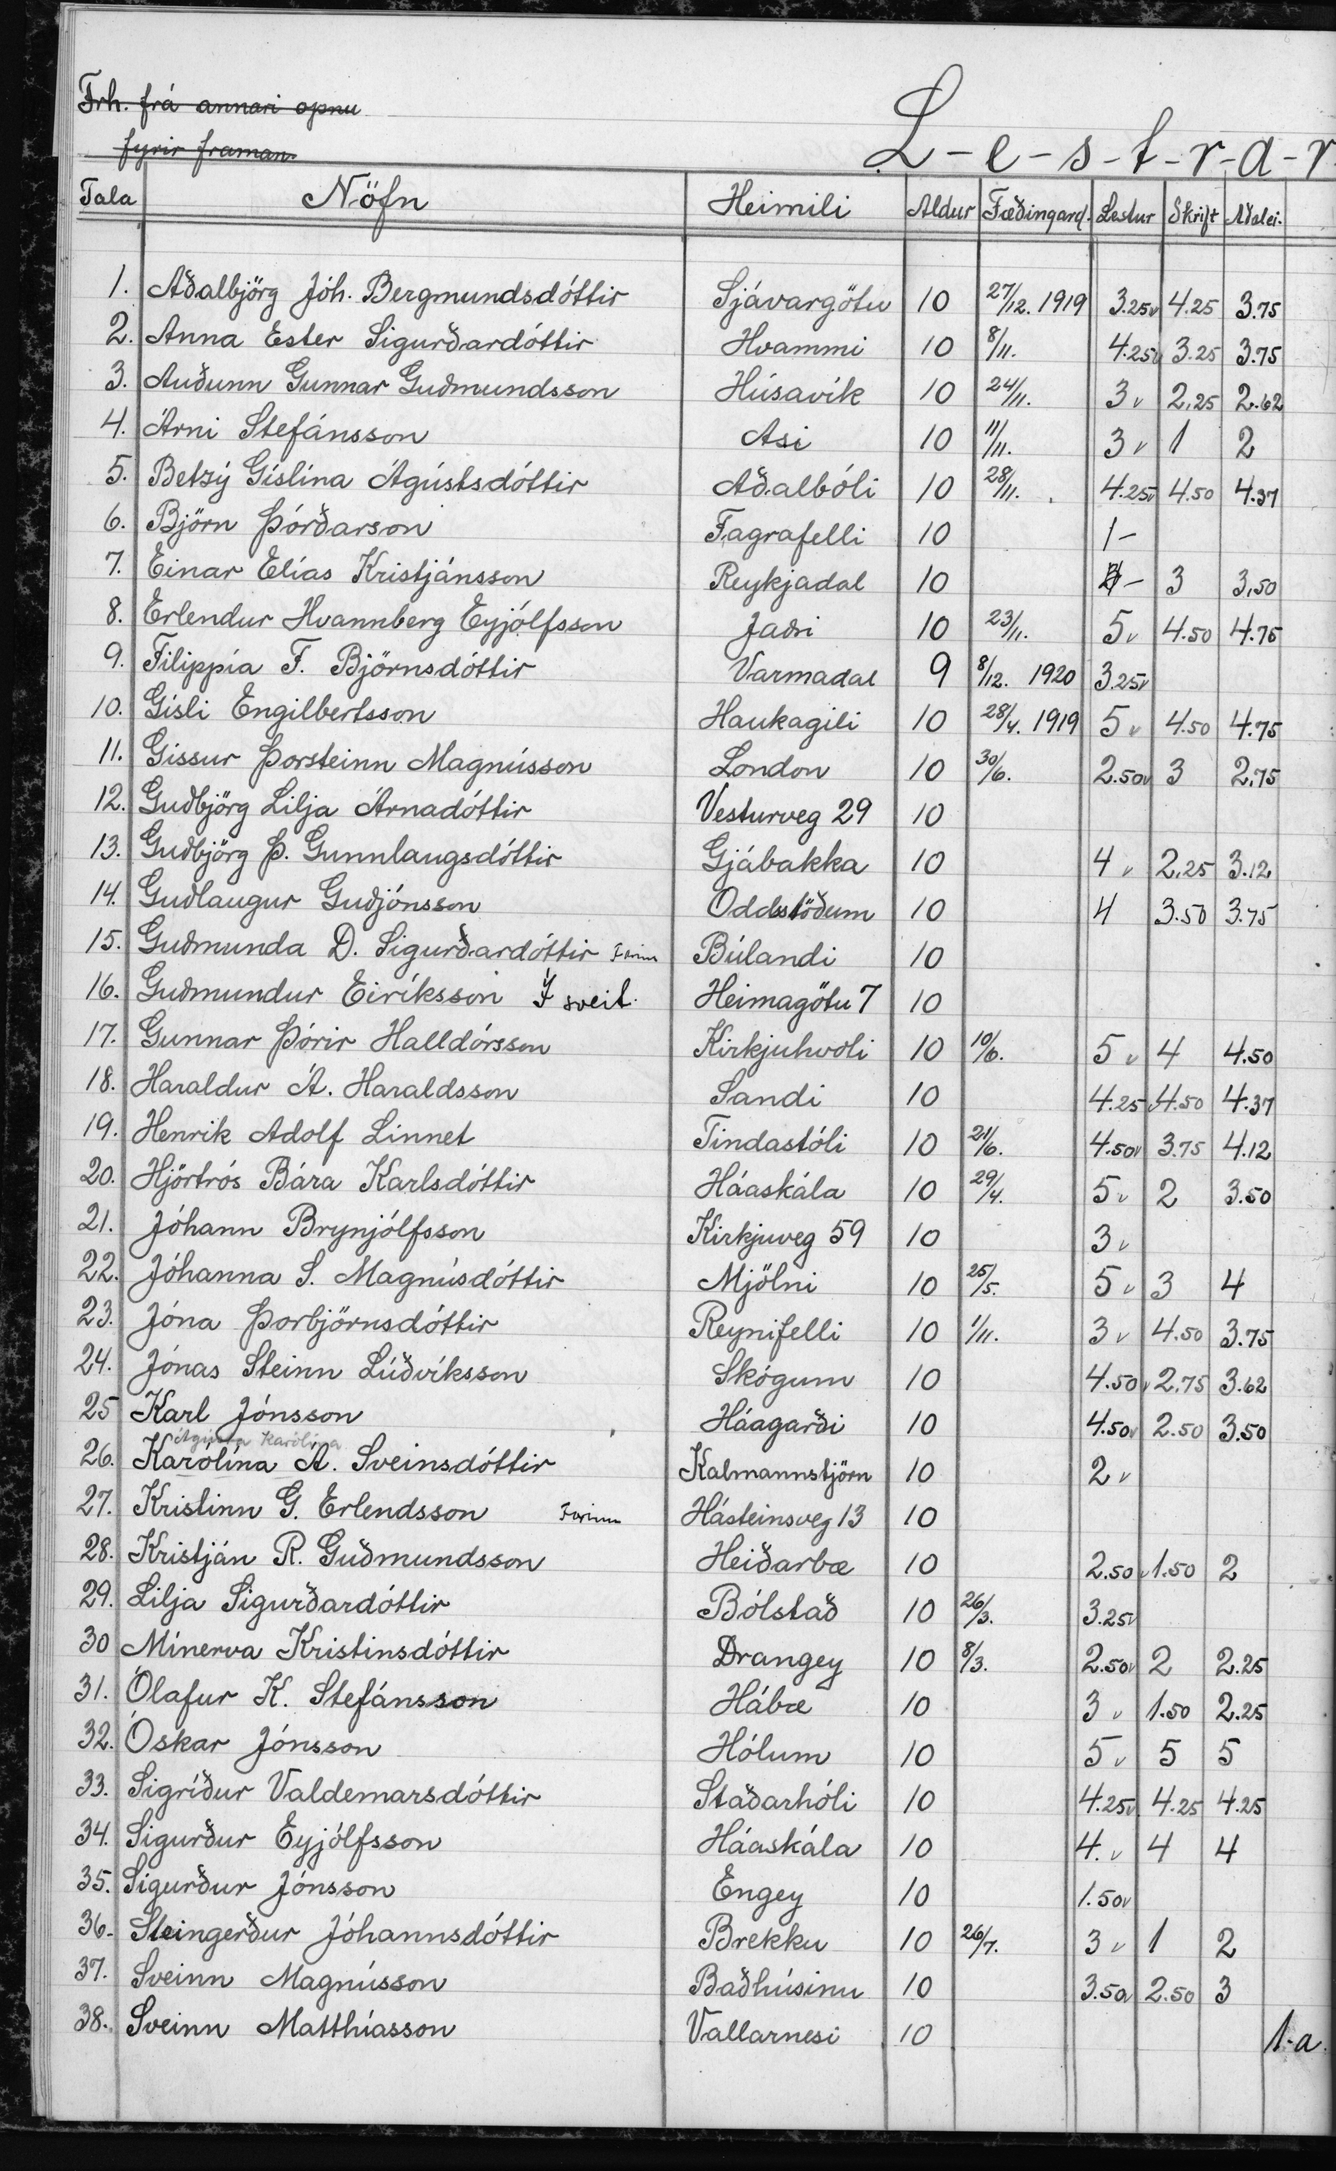 Frh. frá annari opnu
fyrir framan.
L-e-s-t-r-a-r
Tala Nöfn Heimili Aldur Fæðingard. Lestur Skrift Aðalei.
1. Aðalbjörg Jóh. Bergmundsdóttir Sjávargötu 10 27/12. 1919 3.25v 4.25 3.75
2. Anna Ester Sigurðardóttir Hvammi 10 8/11. 4.25v 3.25 3.75
3. Auðunn Gunnar Guðmundsson Húsavík 10 24/11. 3 v 2.25 2.62
4. Árni Stefánsson Asi 10 11/11. 3 v 1 2
5. Betzý Gíslína Ágústsdóttir Aðalbóli 10 28/11. 4.25v 4.50 4.37
6. Björn Þórðarson Fagrafelli 10 1-
7. Einar Elías Kristjánsson Reykjadal 10 - 3 3,50
8. Erlendur Hvannberg Eyjólfsson Jaðri 10 23/11. 5 v 4.50 4.75
9. Filippía F. Björnsdóttir Varmadal 9 8/12. 1920 3.25v
10. Gísli Engilbertsson Haukagili 10 28/4. 1919 5 v 4.50 4.75
11. Gissur Þorsteinn Magnússon London 10 30/6. 2.50v 3 2,75
12. Guðbjörg Lilja Árnadóttir Vesturveg 29 10
13. Guðbjörg Þ. Gunnlaugsdóttir Gjábakka 10 4 v 2,25 3.12
14. Guðlaugur Guðjónsson Oddsstöðum 10 4 3.50 3.75
15. Guðmunda D. Sigurðardóttir Farin Búlandi 10
16. Guðmundur Eiríksson Í sveit. Heimagötu 7 10
17. Gunnar Þórir Halldórsson Kirkjuhvoli 10 10/6. 5 v 4 4.50
18. Haraldur Á. Haraldsson Sandi 10 4.25v 4.50 4.37
19. Henrik Adolf Linnet Tindastóli 10 21/6. 4.50v 3.75 4.12
20. Hjörtrós Bára Karlsdóttir Háaskála 10 29/4. 5 v 2 3.50
21. Jóhann Brynjólfsson Kirkjuveg 59 10 3 v
22. Jóhanna S. Magnúsdóttir Mjölni 10 25/5. 5 v 3 4
23. Jóna Þorbjörnsdóttir Reynifelli 10 1/11. 3 v 4.50 3.75
24. Jónas Steinn Lúðvíksson Skógum 10 4.50v 2.75 3.62
25 Karl Jónsson Háagarði 10 4.50v 2.50 3.50
Ágústa Karólína
26. Karólína Á. Sveinsdóttir Kalmannstjörn 10 2 v
27. Kristinn G. Erlendsson Farinn Hásteinsveg 13 10
28. Kristján R. Guðmundsson Heiðarbæ 10 2.50v 1.50 2
29. Lilja Sigurðardóttir Bólstað 10 26/3. 3.25v
30 Mínerva Kristinsdóttir Drangey 10 8/3. 2.50v 2 2.25
31. Ólafur K. Stefánsson Hábæ 10 3 v 1.50 2.25
32. Óskar Jónsson Hólum 10 5 v 5 5
33. Sigríður Valdemarsdóttir Staðarhóli 10 4.25v 4.25 4.25
34. Sigurður Eyjólfsson Háaskála 10 4. v 4 4
35. Sigurður Jónsson Engey 10 1.50v
36. Steingerður Jóhannsdóttir Brekku 10 26/7. 3 v 1 2
37. Sveinn Magnússon Baðhúsinu 10 3.50v 2.50 3
38. Sveinn Matthíasson Vallarnesi 10
1-a.